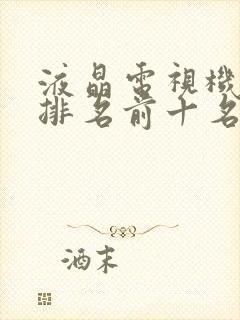 液晶電視機
排名前十名
酒末